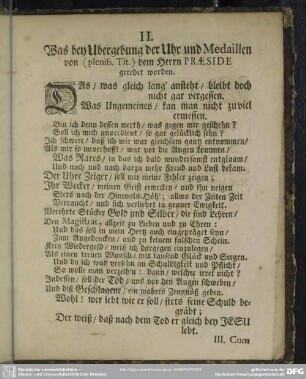 II.
Was bey Ubergebung der Uhr und Medaillen
von (pleniss. Tit.) dem Herrn PRÆSIDE
geredet worden.
DAs / was gleich lang' ansteht / bleibt doch
nicht gar vergessen.
Was Ungemeines / kan man nicht zuviel
ermessen.
Bin ich denn dessen werth / was gegen mir geschehn?
Soll ich mich unverdient / so gar gelücklich sehn?
Ich schwere / daß ich mir war gleichsam gantz entnommen /
Als mir so unverhofft / war vor die Augen kommen /
Was Rares / in das ich bald wundersamst entglaam /
Und nach und nach darzu mehr Freud und Lust bekam.
Der Uhre Zeiger / soll mir meine Fehler zeigen;
Ihr Wecker / meinen Geist erwecken / und ihn neigen
Stets nach der Himmels-Höh'; allwo der Zeiten Zeit
Verraucht / und sich verliehrt in grauer Ewigkeit.
Verehrte Stücke Gold und Silber / die sind Lehren /
Den Magistrat / allzeit zu lieben und zu Ehren:
Und das soll in mein Hertz auch eingepräget seyn /
Zum Angedencken / und zu keinem falschen Schein.
Kein Wiedergeld / weiß ich dargegen einzulegen /
Als einen treuen Wunsch / mit tausend Glück und Seegen.
Und da ich was versäh an Schuldigkeit und Pflicht /
So wolle man verzeih'n: dann / welcher irret nicht?
Indessen / soll der Tod / uns vor den Augen schweben /
Und diß Geschlagene / ein wahres Zeugnüß geben.
Wohl! wer lebt wie er soll / stets seine Schuld be-
gräbt;
Der weiß / daß nach dem Tod er gleich bey JESU
lebt.
III. Cum